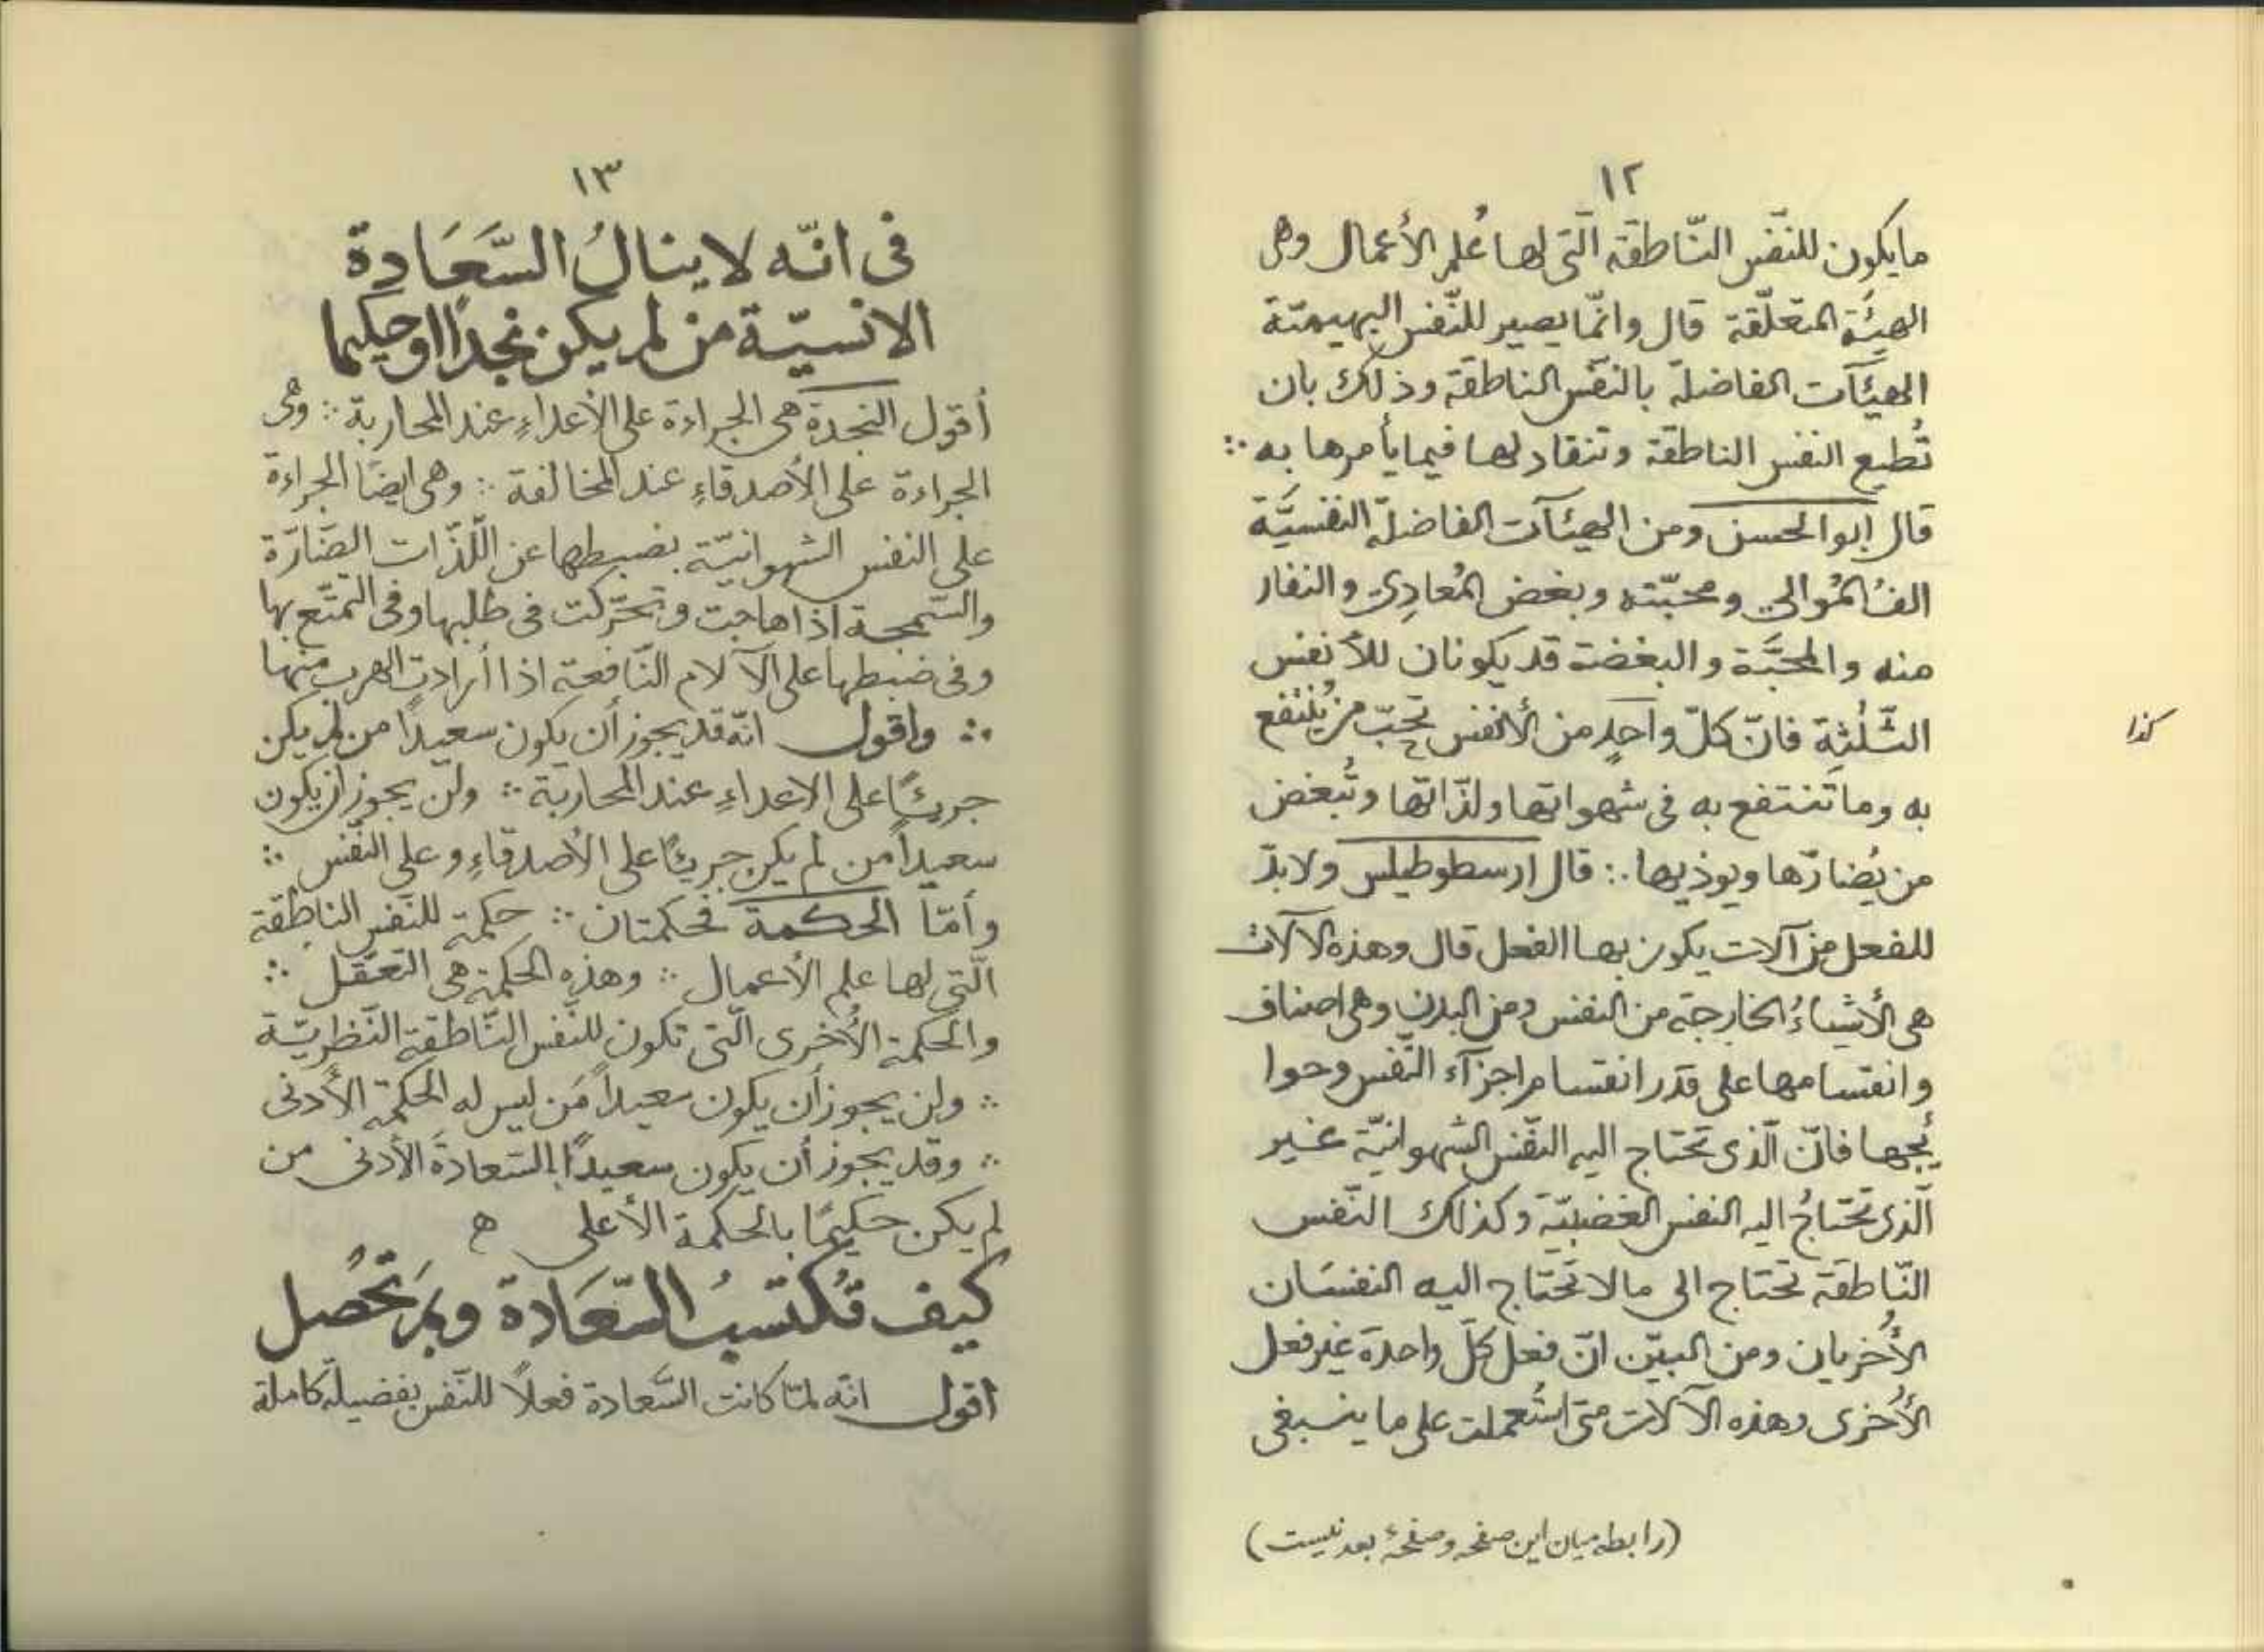 ١٢
مايكون للنّفس النّاطقة الّتى لها عُلِم الأعمال وهى
الهيئة المتعلّقة قال وانّما يصير للنّفس البهيميّة
الهيئآت الفاضلة بالنفس الناطقة وذلك بان
تُطيع النفس الناطقة وتنقاد لها فيما يأمرها به ∴
قال ابوالحسن ومن الهيئآت الفاضلة النفسيَّة
الفُ المُوالي ومحبّته وبغض المُعادِى والنفار
منه والمحبَّة والبغضة قد يكونان للأنفس
الثّلثة فانّ كلّ واحدٍ من الأنفس تحبّ من يُنتفع
كذا
به وما تَنتفع به فى شهواتها ولذّاتها وتُبغض
من يُضارّها ويوذيها ∴ قال ارسطوطيلس ولابدّ
للفعل من آلات يكون بها الفعل قال وهذه الآلات
هى الأشياءُ الخارجة من النفس ومن البدن وهى اصناف
وانقسامها على قدر انقسام اجزآء النّفس وحوا
ئجها فانّ الّذى تحتاج اليه النّفس الشهوانيّة غير
الّذى تحتاجُ اليه النفس الغضبيّة وكذلك النّفس
النّاطقة تحتاج الى ما لا تحتاج اليه النفسَان
الأُخريان ومن البيّن انّ فعل كلّ واحدة غير فعل
الأُخرى وهذه الآلات متى استُعملت على ما ينبغى
(رابطه میان این صفحه وصفحهٔ بعد نیست)
١٣
فى انّه لا ينالُ السَّعَادة
الانسيّة من لم يكن نجدًا او حكيما
أقول النجدة هى الجراءة على الأعداءِ عند المحاربة ∴ وهى
الجراءة على الأصدقاءِ عند المخالفة ∴ وهى ايضًا الجراءة
على النفس الشهوانيّة بضبطها عن اللّذّات الضّارّة
والسّمجة اذا هاجت وتحرّكت فى طلبها وفى التمتّع بها
وفى ضبطها على الآلام النّافعة اذا أرادت الهرب منها
∴ واقول انّه قد يجوز أن يكون سعيدًا من لم يكن
جريئًا على الاعداءِ عند المحاربة ∴ ولن يجوز أن يكون
سعيداً من لم يكن جريئًا على الأصدقاءِ وعلى النّفس ∴
وأمّا الحكمة فحكمتان ∴ حكمة للنّفس الناطقة
الّتى لها علم الأعمال ∴ وهذهِ الحكمة هى التعقّل ∴
والحكمة الأُخرى الّتى تكون للنّفس النّاطقة النّظريّة
∴ ولن يجوز أن يكون سعيداً مَن ليس له الحكمة الأدنى
∴ وقد يجوز أن يكون سعيدًا بالسّعادةَ الأدنى من
لم يكن حكيمًا بالحكمة الأعلى ه
كيف تُكتسبُ السّعَادة وبمَ تحْصُل
اقول انّه لمّا كانت السَّعادة فعلاً للنّفس بفضيلة كاملة